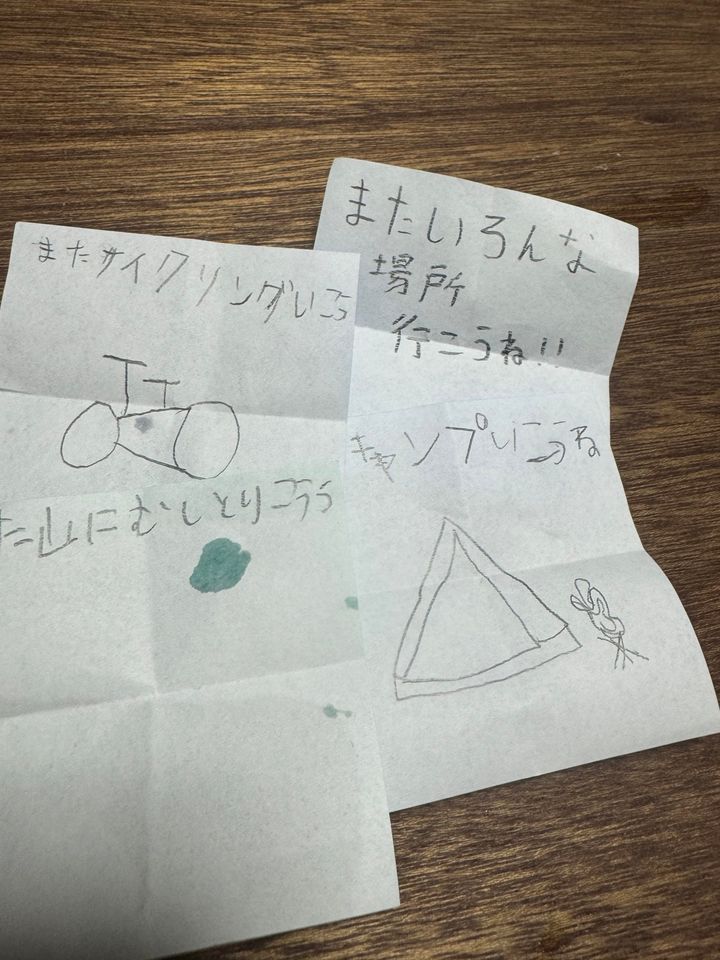 またサイクリングいこう
た山にむしとりこうう
またいろんな
場所
行こうね!!
キャンプいこうね